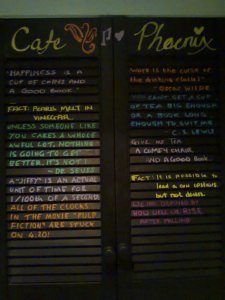 Cafe Phoenix
"HAPPINESS IS A
CUP OF COFFEE AND
A GOOD BOOK."
FACT: PEARLS MELT IN
VINEGAR!
UNLESS SOMEONE LIKE
YOU CARES A WHOLE
AWFUL LOT, NOTHING
IS GOING TO GET
BETTER, IT'S NOT!
- DR. SEUSS
A "JIFFY" IS AN ACTUAL
UNIT OF TIME FOR
1/100th OF A SECOND
ALL OF THE CLOCKS
IN THE MOVIE "PULP
FICTION" ARE STUCK
ON 4:20!
"WORK IS THE CURSE OF
THE DRINKING CLASS!"
- OSCAR WILDE
YOU CAN'T GET A CUP
OF TEA BIG ENOUGH
OR A BOOK LONG
ENOUGH TO SUIT ME
- C.S. LEWIS
GIVE ME TEA
A COMFY CHAIR
AND A GOOD BOOK
FACT: It is possible to
lead a cow upstairs
but not down.
HOW WELL U RISE
AFTER FALLING